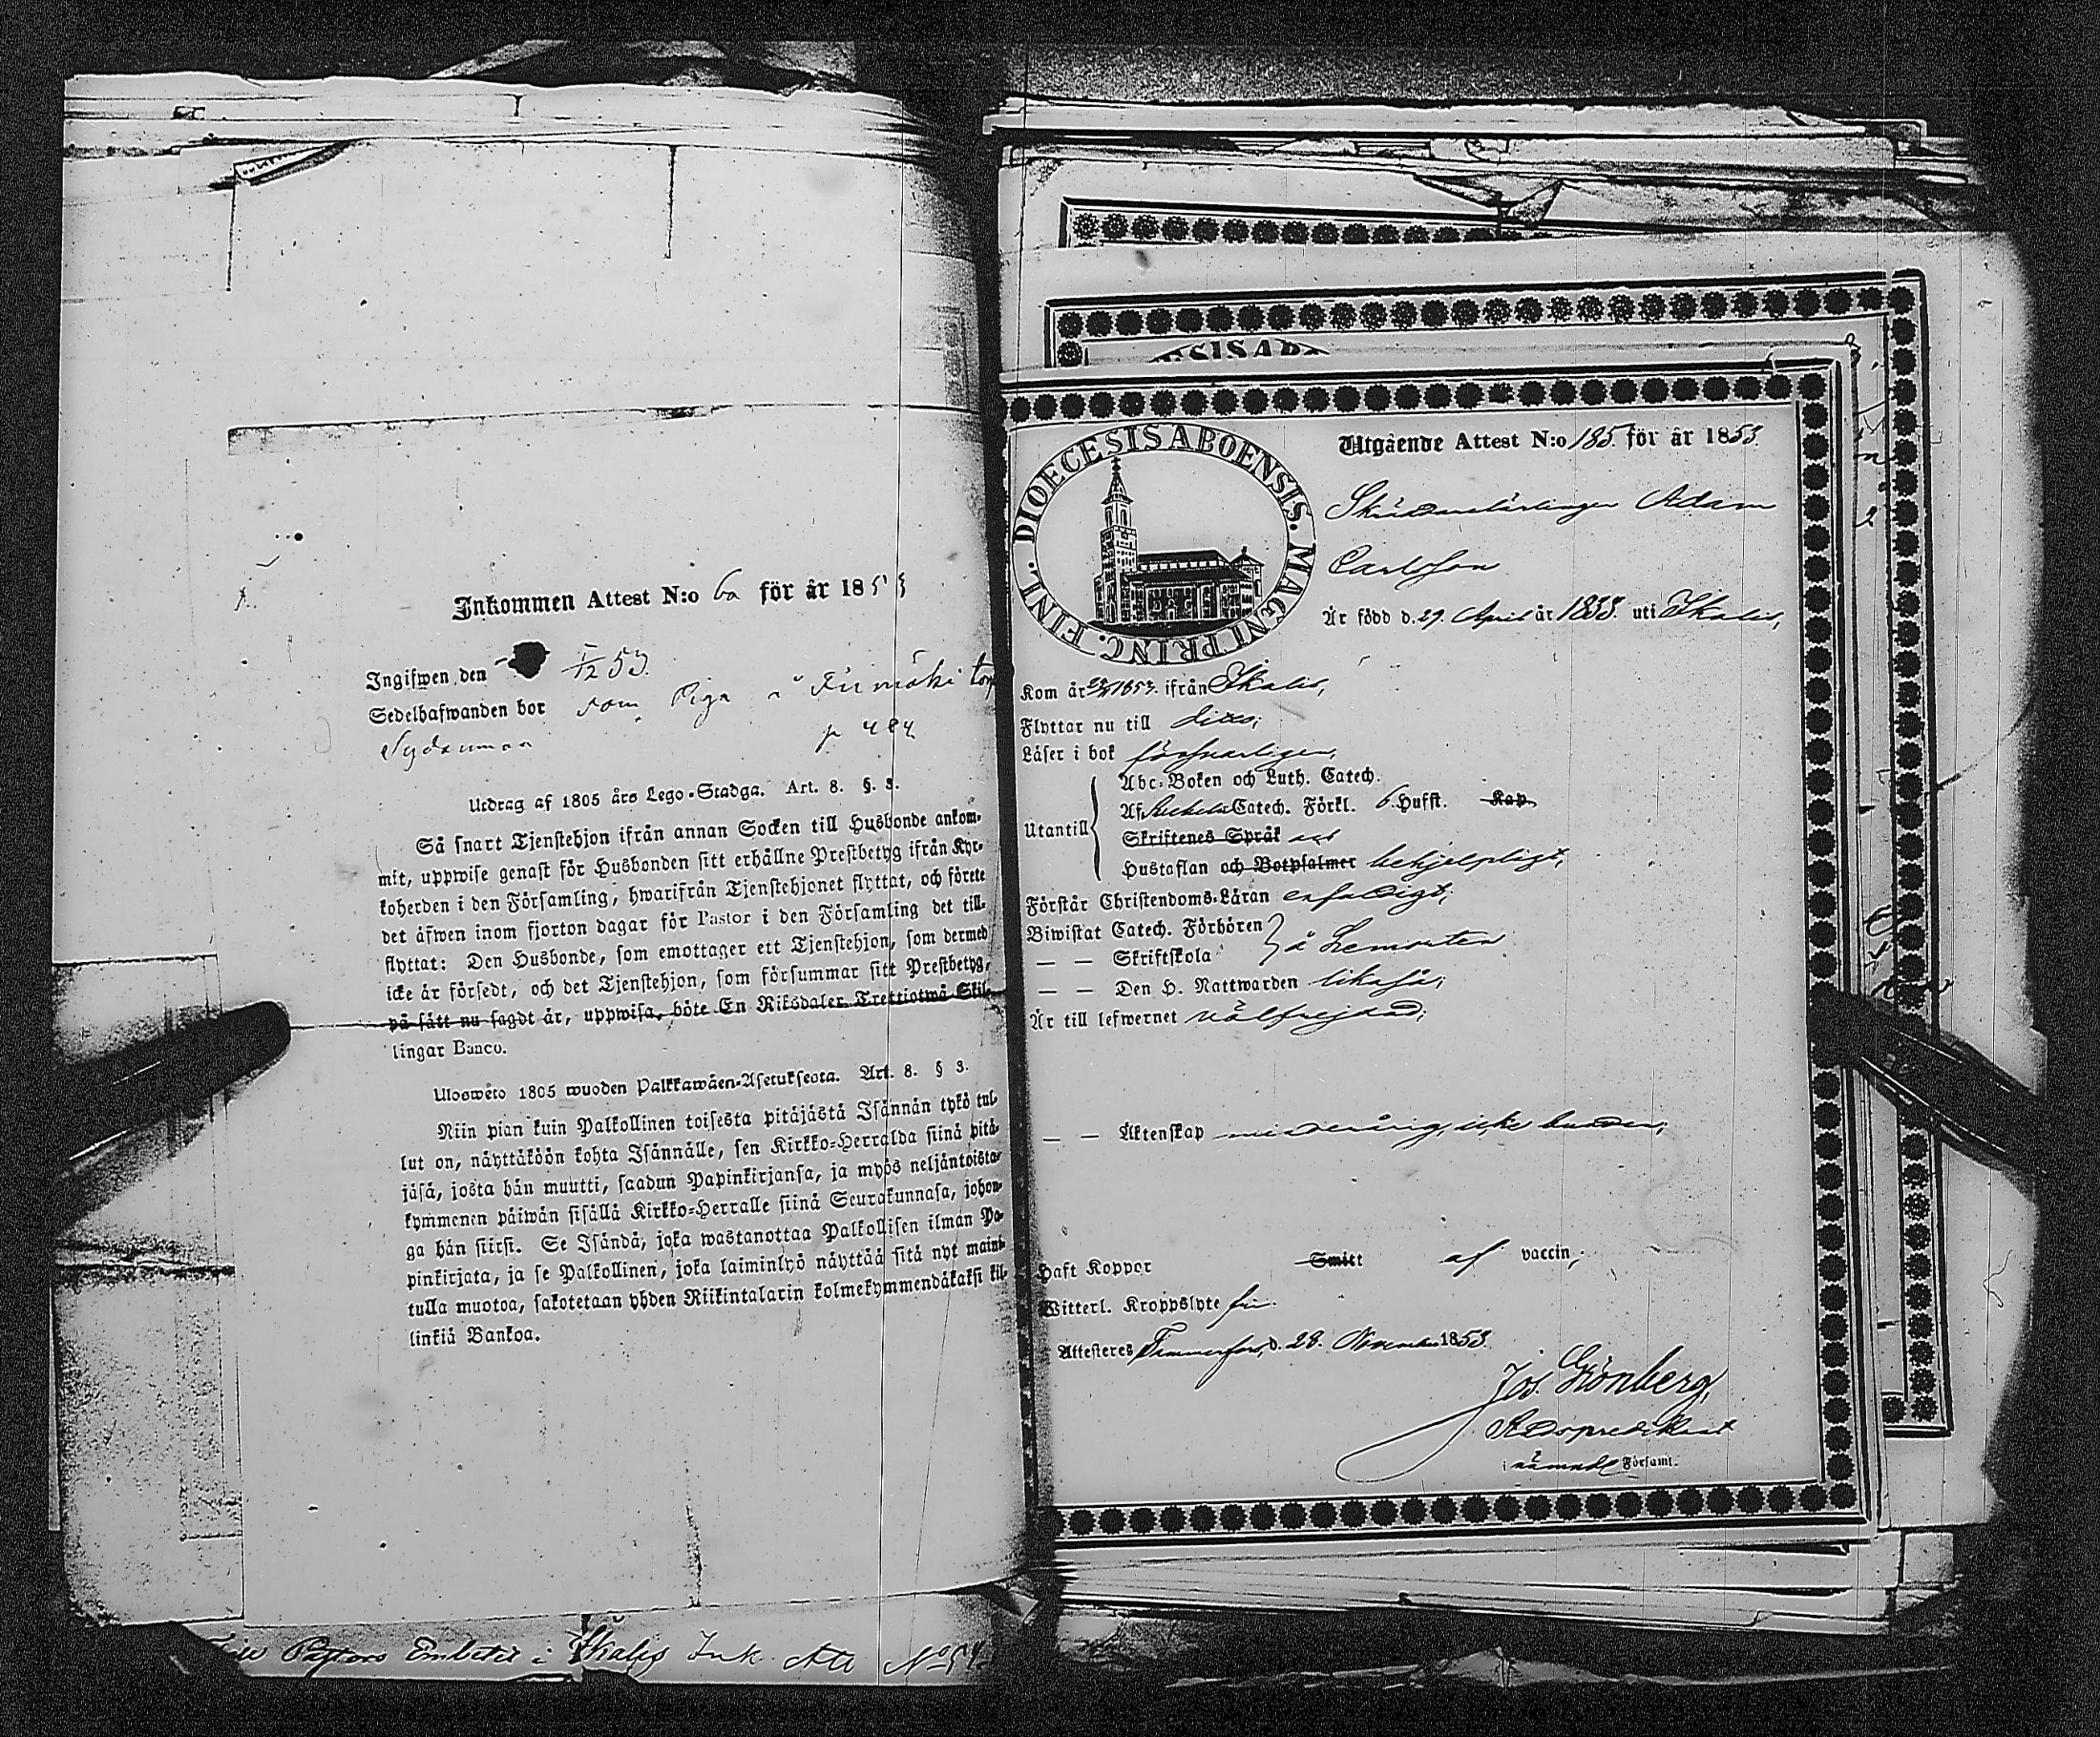 Inkommen Attest N:o 60 för år 1853
Ingifwen den 1/12 53.
Sedelhafwanden bor som Piga å torp
Sydänmaa p 484
Utdrag af 1805 års Lego-Stadga. Art. 8. §. 3.
Så snart Tjenstehjon ifrån annan Socken till Husbonde ankom-
mit, uppwise genast för Husbonden sitt erhållne Prestbetyg ifrån Kyr-
koherden i den Församling, hwarifrån Tjenstehjonet flyttat, och förete
det äfwen inom fjorton dagar för Pastor i den Församling det till-
flyttat: Den Husbonde, som emottager ett Tjenstehjon, som dermed
icke är försedt, och det Tjenstehjon, som försummar sitt Prestbetyg,
på sätt nu sagdt är, uppwisa, böte En Riksdaler Trettiotwå Skil-
lingar Banco.
Ulosweto 1805 wuoden Palkkawäen-Asetuksesta. Art. 8. § 3.
Niin pian kuin Palkollinen toisesta pitäjästä Isännän tykö tul-
lut on, näyttäköön kohta Isännälle, sen Kirkko-Herralda siinä pitä-
jäsä, josta hän muutti, saadun Papinkirjansa, ja myös neljäntoista-
kymmenen päiwän sisällä Kirkko-Herralle siinä Seurakunnasa, johon-
ga hän siirsi. Se Isändä, joka wastanottaa Palkollisen ilman Pa-
pinkirjata, ja se Palkollinen, joka laiminlyö näyttää sitä nyt maini-
tulla muotoa, sakotetaan yhden Riikintalarin kolmekymmendäkaksi kil-
linkiä Bankoa.
Till Pastors Embetet i Ikalis Ink. Att No 54
SIS AB
DIOECESIS ABOENSIS. MAGNI PRINC. FINL.
Utgående Attest N:o 185. för år 1853.
Skräddarelärlingen Adam
Carlsson
Är född d. 29. April år 1833. uti Ikalis,
Kom år 1853. ifrån Ikalis,
Flyttar nu till dito;
Läser i bok försvarligen,
Utantill
Abc-Boken och Luth. Catech.
Af Catech. Förkl. 6 Hufst. Kap.
Skriftenes Språk och
Hustaflan och Botpsalmer behjelpligt,
Förstår Christendoms-Läran enfaldigt;
Biwistat Catech. Förhören
— — Skriftskola å Hemorten
— — Den H. Nattwarden likaså;
Är till lefwernet välfrejdad;
— — Äktenskap minderårig, icke bunden;
Haft Koppor Smitt af vaccin;
Witterl. Kroppslyte fri.
Attesteres Tammerfors, d. 28. November 1853.
Jos. Grönberg,
Kedspredikant
i nämnde Församl.